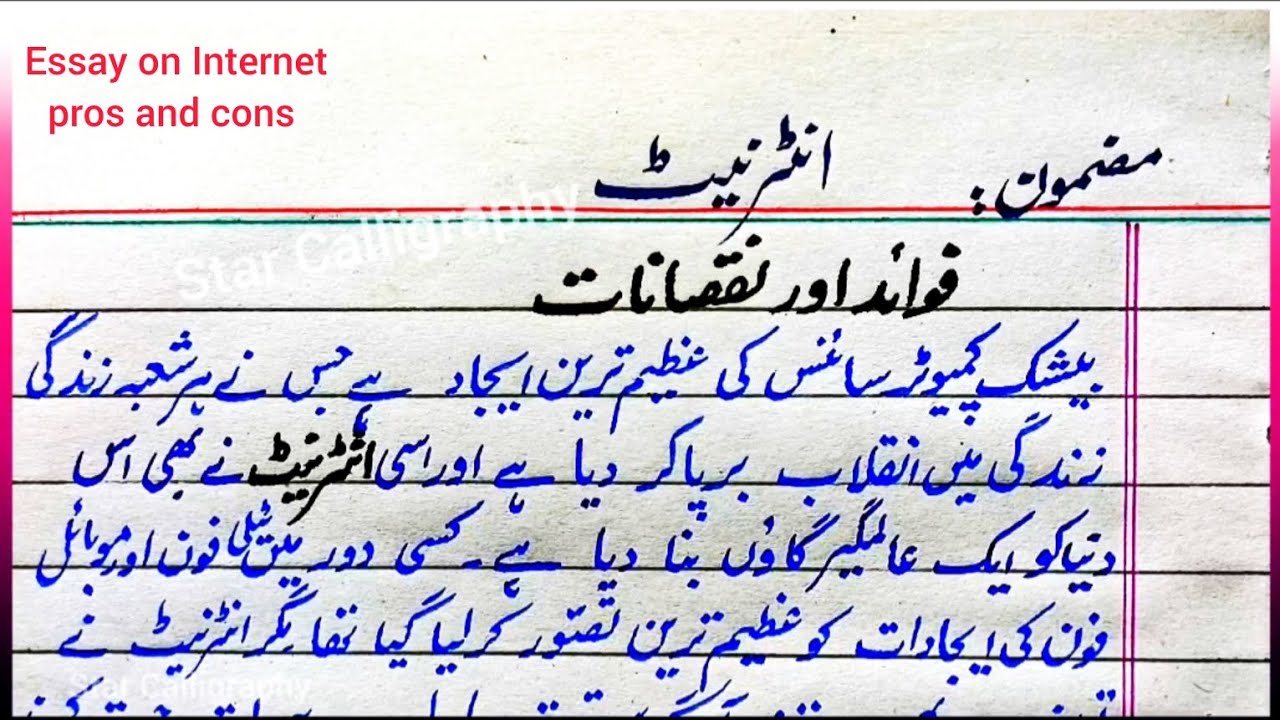 Essay on Internet
pros and cons
مضمون: انٹرنیٹ
فوائد اور نقصانات
بیشک کمپیوٹر سائنس کی عظیم ترین ایجاد ہے جس نے ہر شعبہ زندگی
زندگی میں انقلاب برپا کر دیا ہے اور اسی انٹرنیٹ نے بھی اس
دنیا کو ایک عالمگیر گاؤں بنا دیا ہے۔ کسی دور میں ٹیلی فون اور موبائل
فون کی ایجادات کو عظیم ترین تصور کر لیا گیا تھا مگر انٹرنیٹ نے
Star Calligraphy
Star Calligraphy